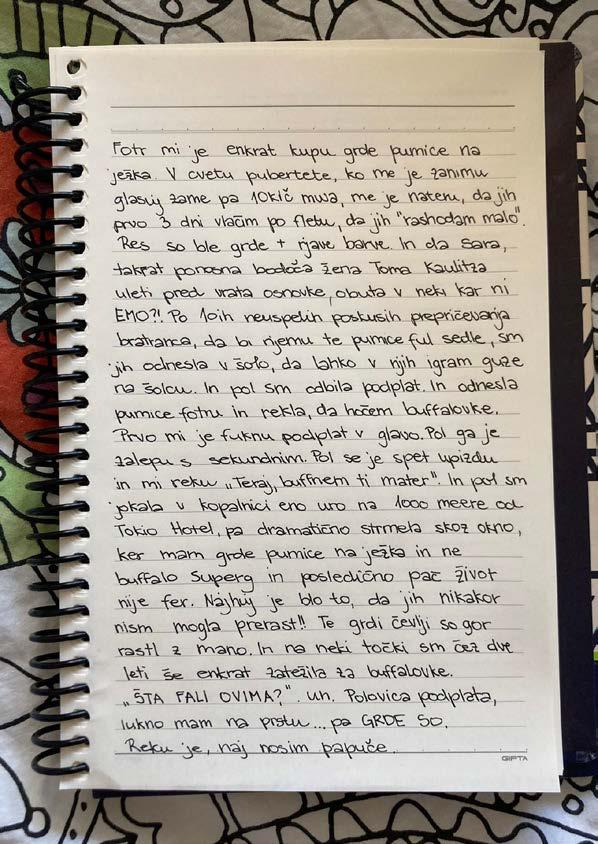 Fotr mi je enkrat kupu grde pumice na
ježka. V cvetu pubertete, ko me je zanimu
glasuj zame pa 10kič mwa, me je nateru, da jih
prvo 3 dni vlačim po fletu, da jih "rashodam malo".
Res so ble grde + rjave barve. In da Sara,
takrat ponosna bodoča žena Toma Kaulitza
uleti pred vrata osnovke, obuta v neki kar ni
EMO?! Po 10ih neuspelih poskusih prepričevanja
bratranca, da bi njemu te pumice ful sedle, sm
jih odnesla v šolo, da lahko v njih igram guze
na šolcu. In pol sm odbila podplat. In odnesla
pumice fotru in rekla, da hočem buffalovke.
Prvo mi je fuknu podplat v glavo. Pol ga je
zalepu s sekundnim. Pol se je spet upizdu
in mi reku „Teraj, buffnem ti mater". In pol sm
jokala v kopalnici eno uro na 1000 meere od
Tokio Hotel, pa dramatično strmela skoz okno,
ker mam grde pumice na ježka in ne
buffalo Superg in posledično pač život
nije fer. Najhuj je blo to, da jih nikakor
nism mogla prerast!! Te grdi čevlji so gor
rastl z mano. In na neki točki sm čez dve
leti še enkrat zatežila za buffalovke.
„ŠTA FALI OVIMA?". un. Polovica podplata,
lukno mam na prstu... pa GRDE SO.
Reku je, naj nosim papuče.
GIPTA